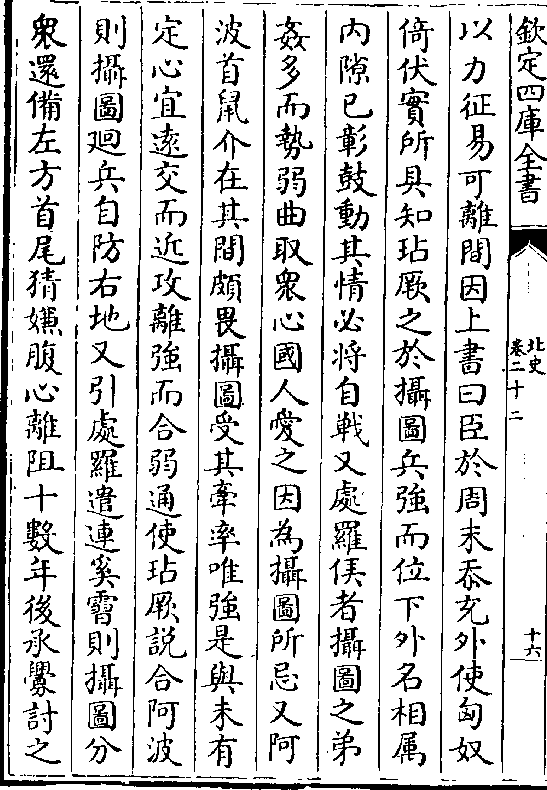 欽定四庫全書
北史
卷二十二
十六
以力征易可離間因上書曰臣於周末忝充外使匈奴
倚伏實所具知玷厥之於攝圖兵強而位下外名相属
内隙已彰鼓動其情必將自戰又處羅侯者攝圖之弟
姦多而勢弱曲取衆心國人愛之因為攝圖所忌又阿
波首鼠介在其間頗畏攝圖受其牽率唯強是與未有
定心宜逺交而近攻離強而合弱通使玷厥説合阿波
則攝圖廻兵自防右地又引處羅遣連奚霫則攝圖分
衆還備左方首尾猜嫌腹心離阻十數年後承釁討之